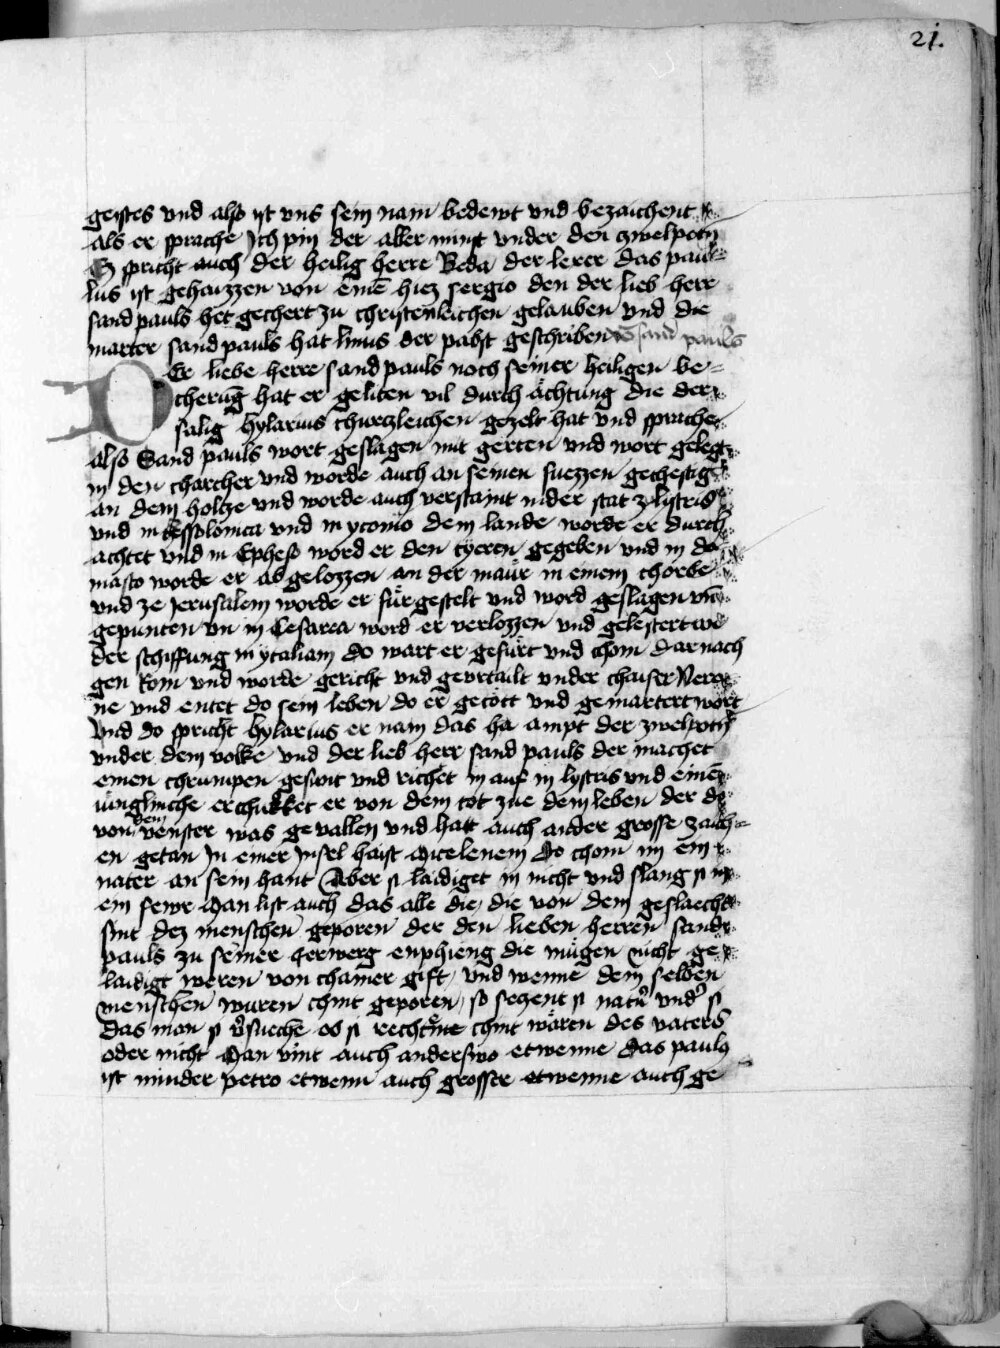 21.
geistes vnd also ist vns sein nam bedewt vnd bezaichent
als er sprache Ich pin der aller minst vnder den zwelpotn
Es spricht auch der heilig herre Beda der lerer das pau
lus ist gehaizzen von eine hiez sergio den der lieb herr
sand pauls het gechert zu christenleichen gelauben vnd die
marter sand pauls hat linus der pabst geschriben vō sand pauls
Der liebe herre sand pauls noch seiner heiligen be
cherūg hat er geliten vil durch ächtung die der
salig hylarius churczleichen gezelt hat vnd sprache
also Sand pauls wort geslagen mit gerten vnd wort gelegt
in den charcher vnd worde auch an seinen fuezzen gechestigt
an dem holtze vnd worde auch verstaint in der stat ze lystris
vnd in thessolonica vnd in yconio dem lande worde er durch
achtet vnd in Epheso word er den tyeren gegeben vnd in da
masco worde er ab gelozzen an der maür in einem chorbe
vnd ze Jerusalem worde er für gestelt vnd word geslagen vn
gepunten vn in Cesarea word er verlozzen vnd gelestert
der schiffung in ytaliam do wart er gefürt vnd chom dar nach
gen Rom vnd worde gericht vnd gevrtailt vnder chaiser Nero
ne vnd entet do sein leben do er getött vnd gemartert wort
Vnd do spricht hylarius er nam das ha ampt der zwelpotn
vnder dem volke vnd der lieb herr sand pauls der machet
einen chrumpen gesunt vnd richet in auf in lystris vnd einē
iünglinche erchukket er von dem tot zue dem leben der do
von dem venster was gevallen vnd hatt auch ander grosse zaich
en getan In einer Insel haist Mitelenem Do chom im ein
nater an sein hant Aber si laidiget in nicht vnd slang si in
ein fewr Man list auch das alle die die von dem geslaecht
sint dez menschen geporen der den lieben herren sand
pauls zu seiner herwerg enphieng die mügen nicht ge
laidigt weren von chainer gift vnd wenne dem selben
menschen wuren chint geporen so seczent si natr̄ vnd si
das man si v̄suechē ob si rechtine chint wären des vaters
oder nicht Man vint auch anderswo etwenne das paulꝰ
ist minder petro etwenn auch grosster etwenne auch ge